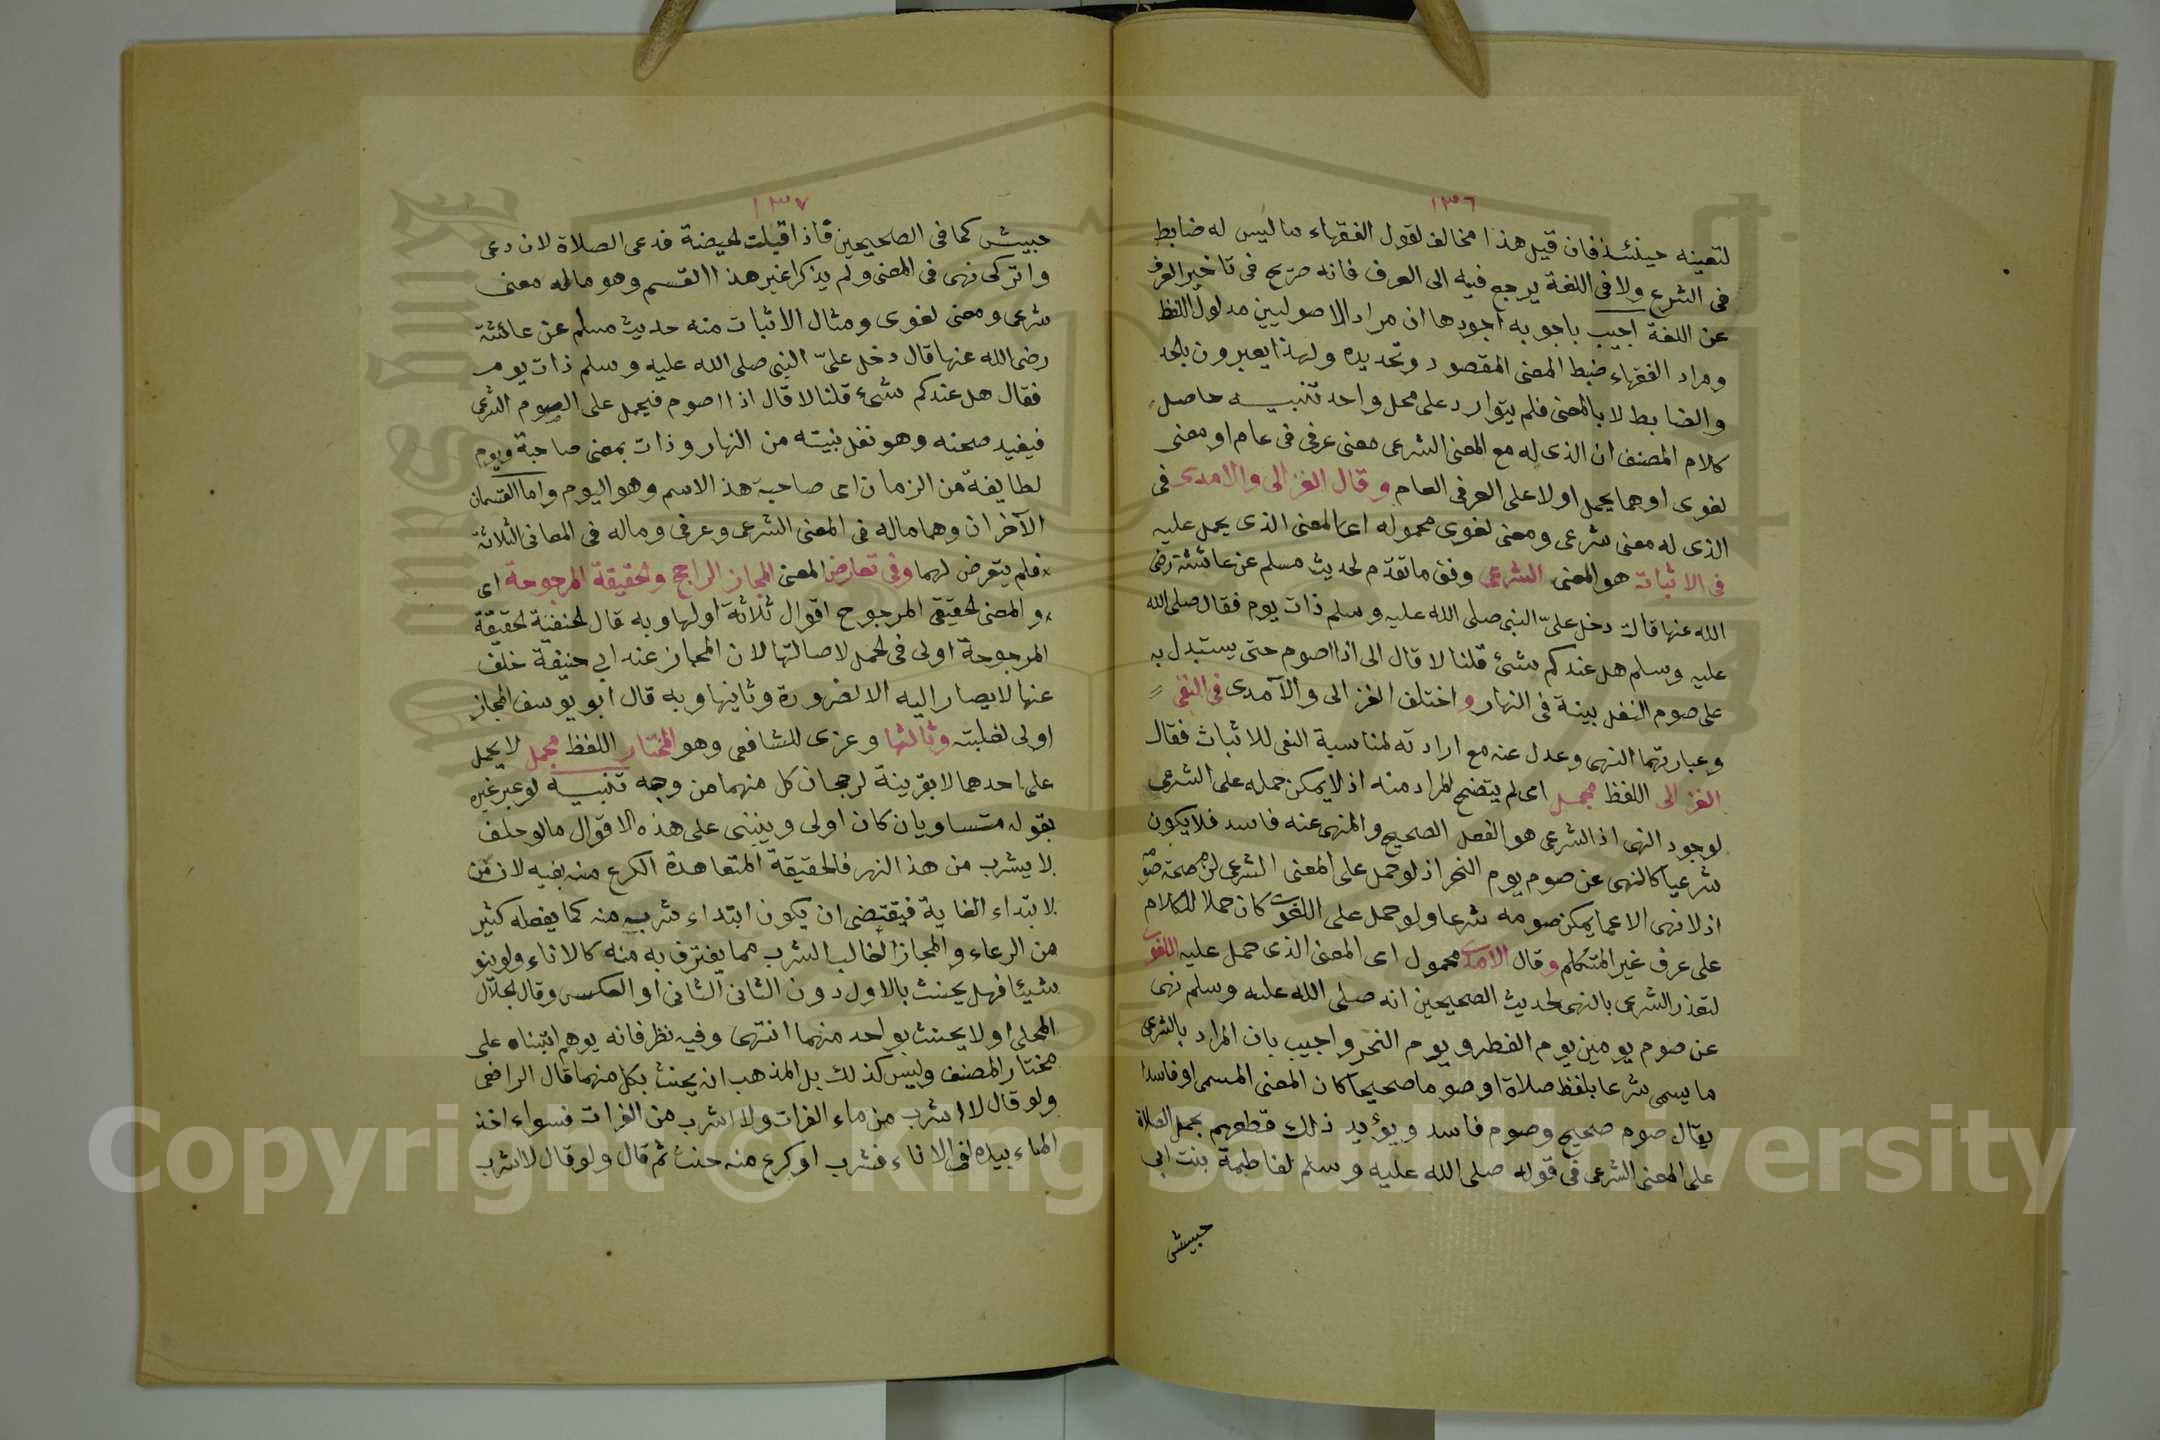 ١٣٦
لتعينه حينئذ فان قيل هذا مخالف لقول الفقهاء ما ليس له ضابط
فى الشرع ولا فى اللغة يرجع فيه الى العرف فانه صريح فى تاخير العرف
عن اللغة اجيب باجوبه اجودها ان مراد الاصوليين مدلول اللفظ
ومراد الفقهاء ضبط المعنى المقصود وتحديده ولهذا يعبرون بالحد
والضابط لا بالمعنى فلم يتوارد على محل واحد تنبيه حاصل
كلام المصنف ان الذى له مع المعنى الشرعى معنى عرفى عام او معنى
لغوى او هما يحمل اولا على العرفى العام وقال الغزالى والامدى فى
الذى له معنى شرعى ومعنى لغوى محموله اى المعنى الذى يحمل عليه
فى الاثبات هو المعنى الشرعى وفق ما تقدم لحديث مسلم عن عائشة رضى
الله عنها قالت دخل علىّ النبى صلى الله عليه وسلم ذات يوم فقال صلى الله
عليه وسلم هل عندكم شئ قلنا لا قال الى اذا اصوم حتى يستبدل به
على صوم النفل بينة فى النهار واختلف الغزالى والآمدى فى النفى
وعبارتهما النهى وعدل عنه مع ارادته لمناسبة النفى للاثبات فقال
الغزالى اللفظ مجمل اى لم يتضح المراد منه اذ لا يمكن حمله على الشرعى
لوجود النهى اذ الشرعى هو الفعل الصحيح والمنهى عنه فاسد فلا يكون
شرعيا كالنهى عن صوم يوم النحر اذ لو حمل على المعنى الشرعى لزم صحة صو
اذ لا نهى الا عما يمكن صومه شرعا ولو حمل على اللغوى كان حملا لكلام
على عرف غير المتكلم وقال الامدى محمول اى المعنى الذى حمل عليه اللغوى
لتعذر الشرعى بالنهى لحديث الصحيحين انه صلى الله عليه وسلم نهى
عن صوم يومين يوم الفطر ويوم النحر واجيب بان المراد بالشرعى
ما يسمى شرعا بلفظ صلاة او صوما صحيحا كان المعنى المسمى او فاسدا
يقال صوم صحيح وصوم فاسد ويؤيد ذلك قطعهم بحمل الصلاة
على المعنى الشرعى فى قوله صلى الله عليه وسلم لفاطمة بنت ابى
حبيش
١٣٧
حبيش كما فى الصحيحين فاذا اقبلت الحيضة فدعى الصلاة لان دعى
واتركى نهى فى المعنى ولم يذكرا غير هذا القسم وهو ماله معنى
شرعى ومعنى لغوى ومثال الاثبات منه حديث مسلم عن عائشة
رضى الله عنها قال دخل علىّ النبى صلى الله عليه وسلم ذات يوم
فقال هل عندكم شئ قلنا لا قال اذا اصوم فيحمل على الصوم الشرعى
فيفيد صحته وهو نفل بنيته من النهار وذات بمعنى صاحبة ويوم
لطايفة من الزمان اى صاحبة هذ الاسم وهو اليوم واما القسمان
الآخران وهما ماله فى المعنى الشرعى وعرفى وماله فى المعانى الثلاثة
فلم يتعرض لهما وفى تعارض المعنى المجاز الراجح والحقيقة المرجوحة اى
والمعنى الحقيقى المرجوح اقوال ثلاثة اولها وبه قال الحنفية الحقيقة
المرجوحة اولى فى الحمل لاصالتها لان المجاز عند ابي حنيفة خلف
عنها لا يصار اليه الا لضرورة وثانيها وبه قال ابو يوسف المجاز
اولى لغلبته وثالثها وعزى للشافعى وهو المختار اللفظ مجمل لا يحمل
على احدهما لا بقرينة لرجحان كل منهما من وجه تنبيه لو عبر غيره
بقوله متساويان كان اولى وينبنى على هذه الاقوال ما لو حلف
لا يشرب من هذ النهر فالحقيقة المتعاهدة الكرع منه بفيه لان من
لابتداء الغاية فيقتضى ان يكون ابتداء شربه منه كما يفعله كثير
من الرعاء والمجاز الغالب الشرب مما يغترف به منه كالاناء ولو ينو
شيئا فهل يحنث بالاول دون الثانى الثانى او العكس وقال الجلال
المحلى او لا يحنث بواحد منهما انتهى وفيه نظر فانه يوهم ابتناءه على
مختار المصنف وليس كذلك بل المذهب انه يحنث بكل منهما قال الرافعى
ولو قال لا اشرب من ماء الفرات ولا اشرب من الفرات فسواء اخذ
الماء بيده فى الاناء فشرب او كرع منه حنث ثم قال ولو قال لا اشرب
Copyright © King Saud University